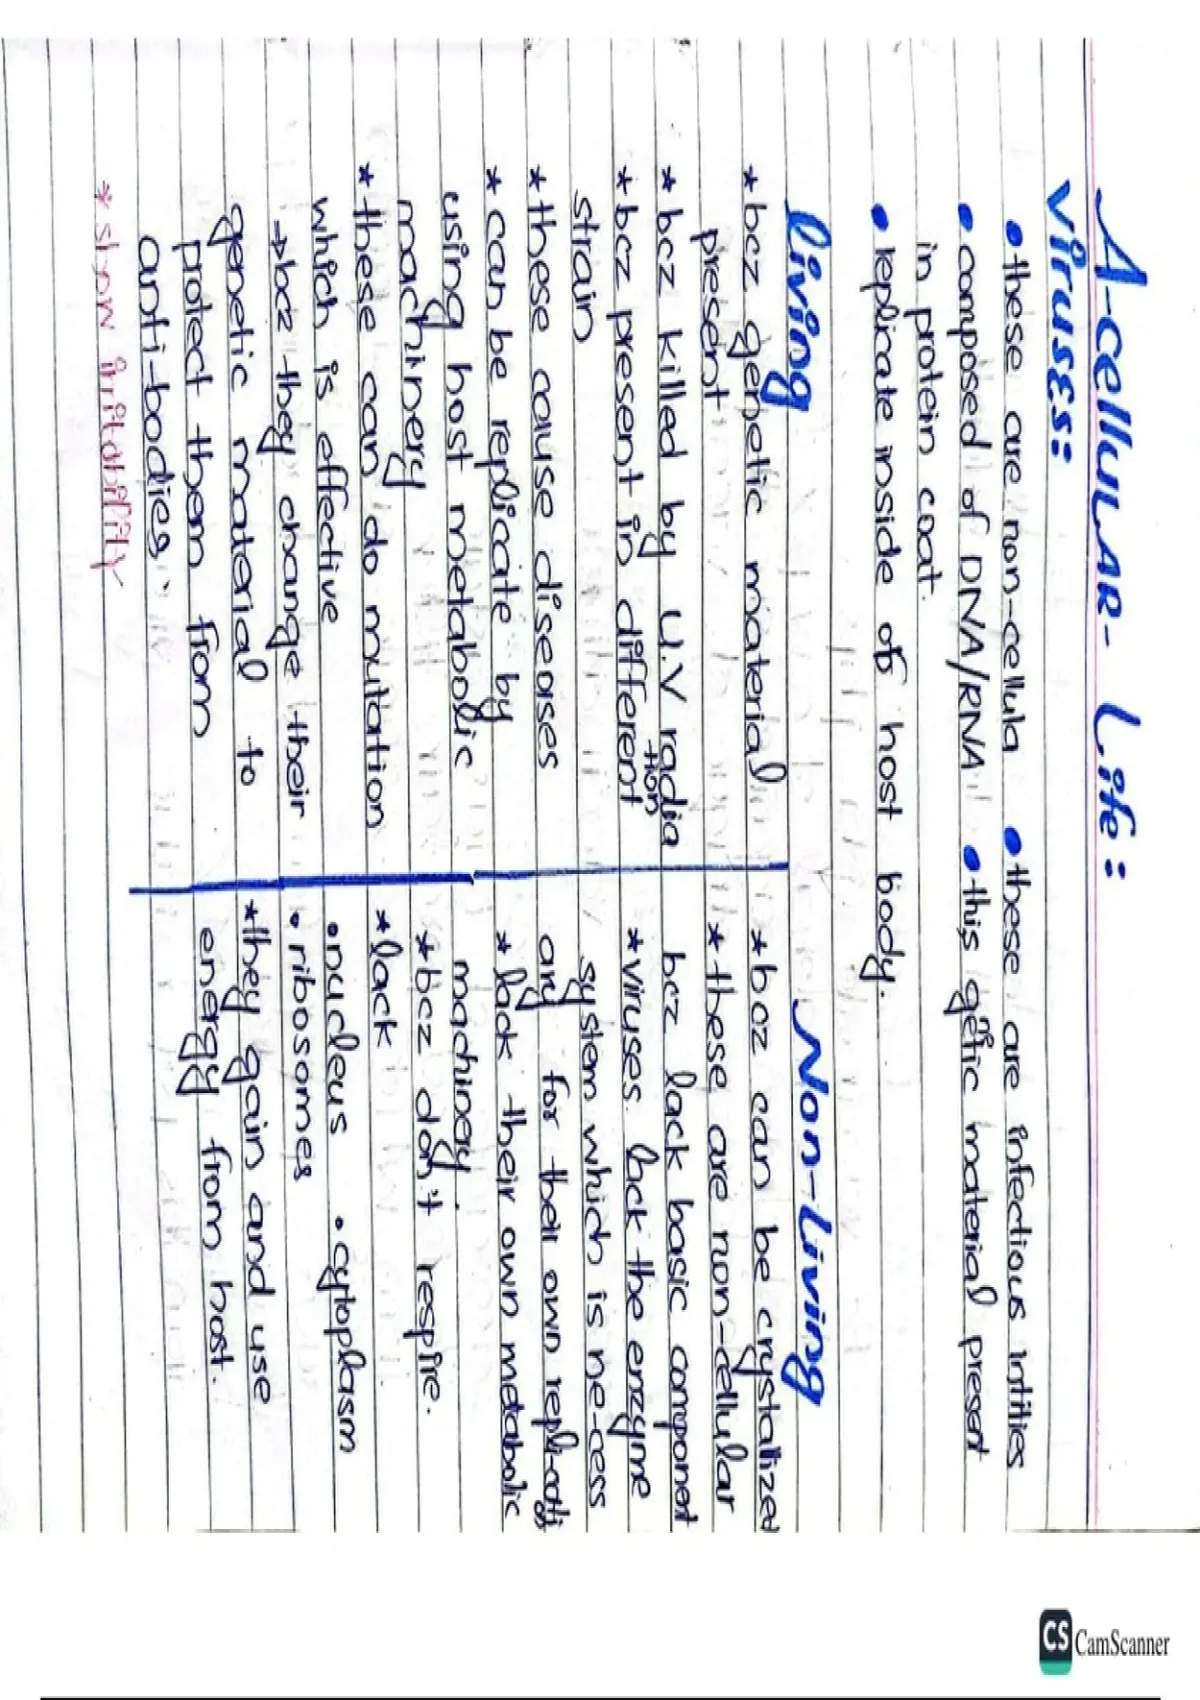 A-cellular- Life:
Viruses:
• these are non-cellula • these are infectious intities
• composed of DNA/RNA • this getic material present
in protein coat.
• replicate inside of host body.
living
* bcz genetic material
present
* bcz killed by U.V radia
tion
* bcz present in different
strain
* these cause diseases
* can be replicate by
using host metabolic
machinery
* these can do mutation
which is effective
→ bcz they change their
genetic material to
protect them from
anti-bodies.
* show irritability
Non-Living
* bcz can be crystallized
* these are non-cellular
bcz lack basic component
* viruses lack the enzyme
system which is ne-cess
ary for their own
* lack their own metabolic
machinery.
* bcz don't respire.
* lack
• nucleus • cytoplasm
• ribosomes
* they gain and use
energy from host.
CS CamScanner